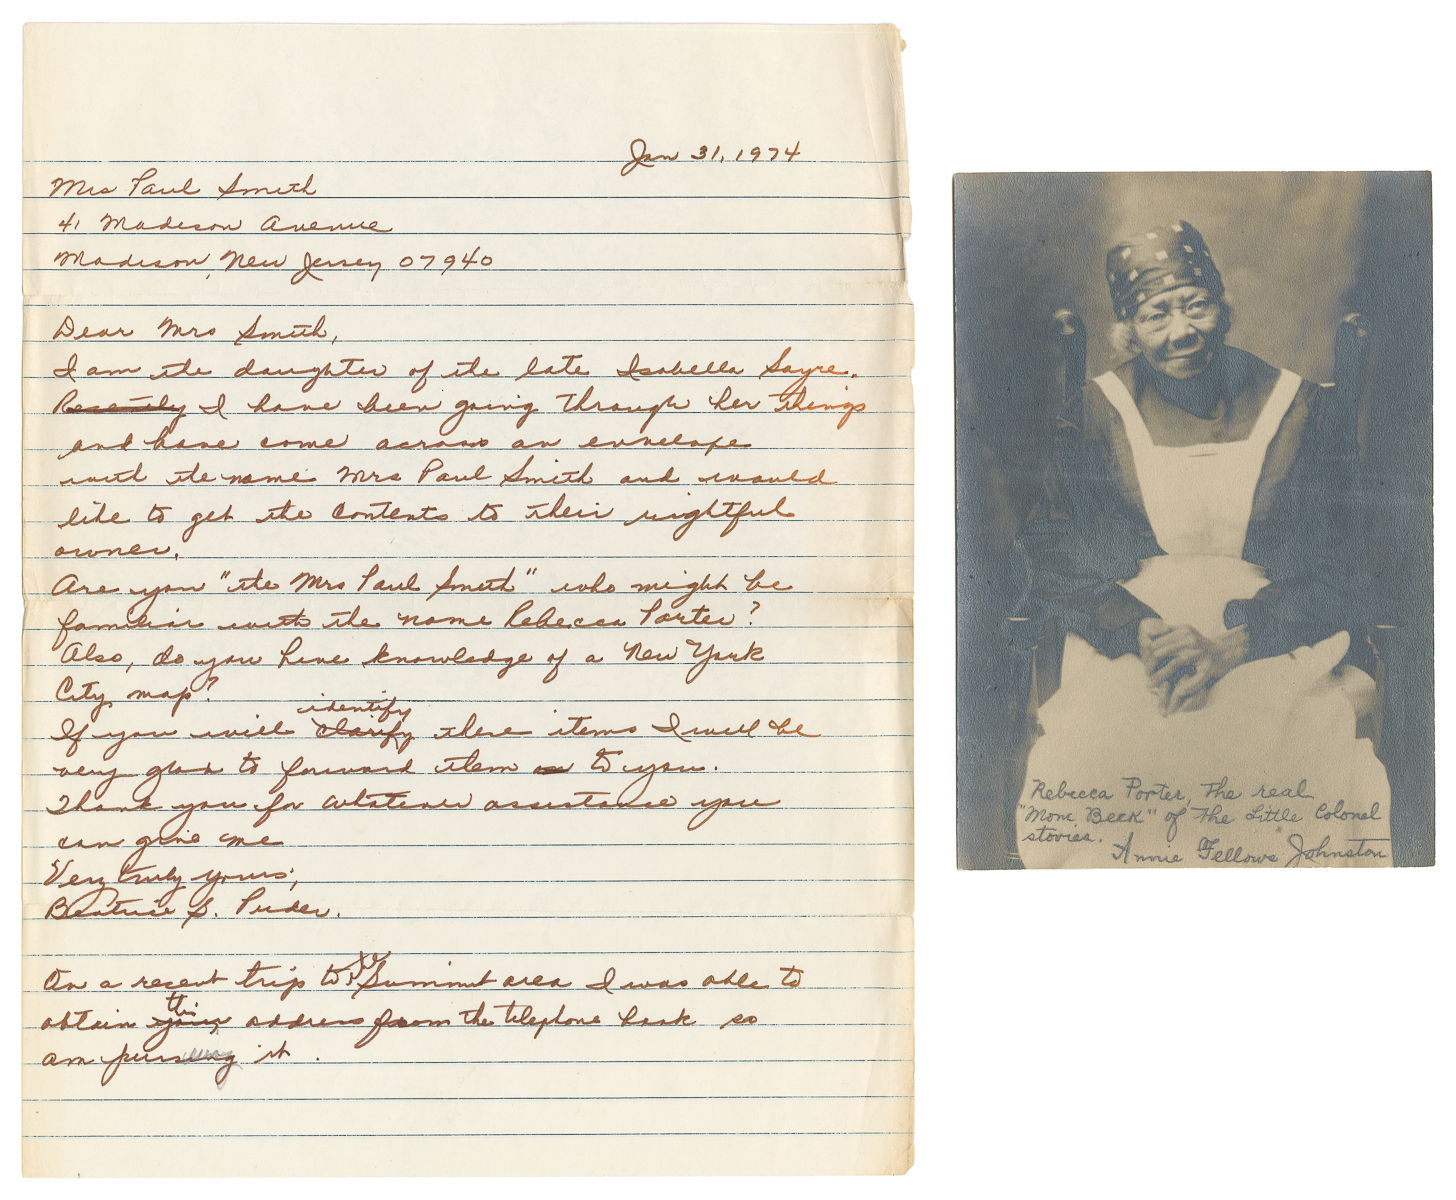 Jan 31, 1974
Mrs Paul Smith
41 Madison Avenue
Madison, New Jersey 07940
Dear Mrs Smith,
I am the daughter of the late Isabella Sayre.
Recently I have been going through her things
and have come across an envelope
with the name Mrs Paul Smith and would
like to get the contents to their rightful
owner.
Are you "the Mrs Paul Smith" who might be
familiar with the name Rebecca Porter?
Also, do you have knowledge of a New York
City map?
identify
If you will clarify these items I will be
very glad to forward them to you.
Thank you for whatever assistance you
can give me
Very truly yours,
Beatrice S. Puder.
On a recent trip to the Summit area I was able to
this
obtain your address from the telephone book so
am pursuing it.
Rebecca Porter, the real
"Mom Beck" of the Little Colonel
stories.
Annie Fellows Johnston